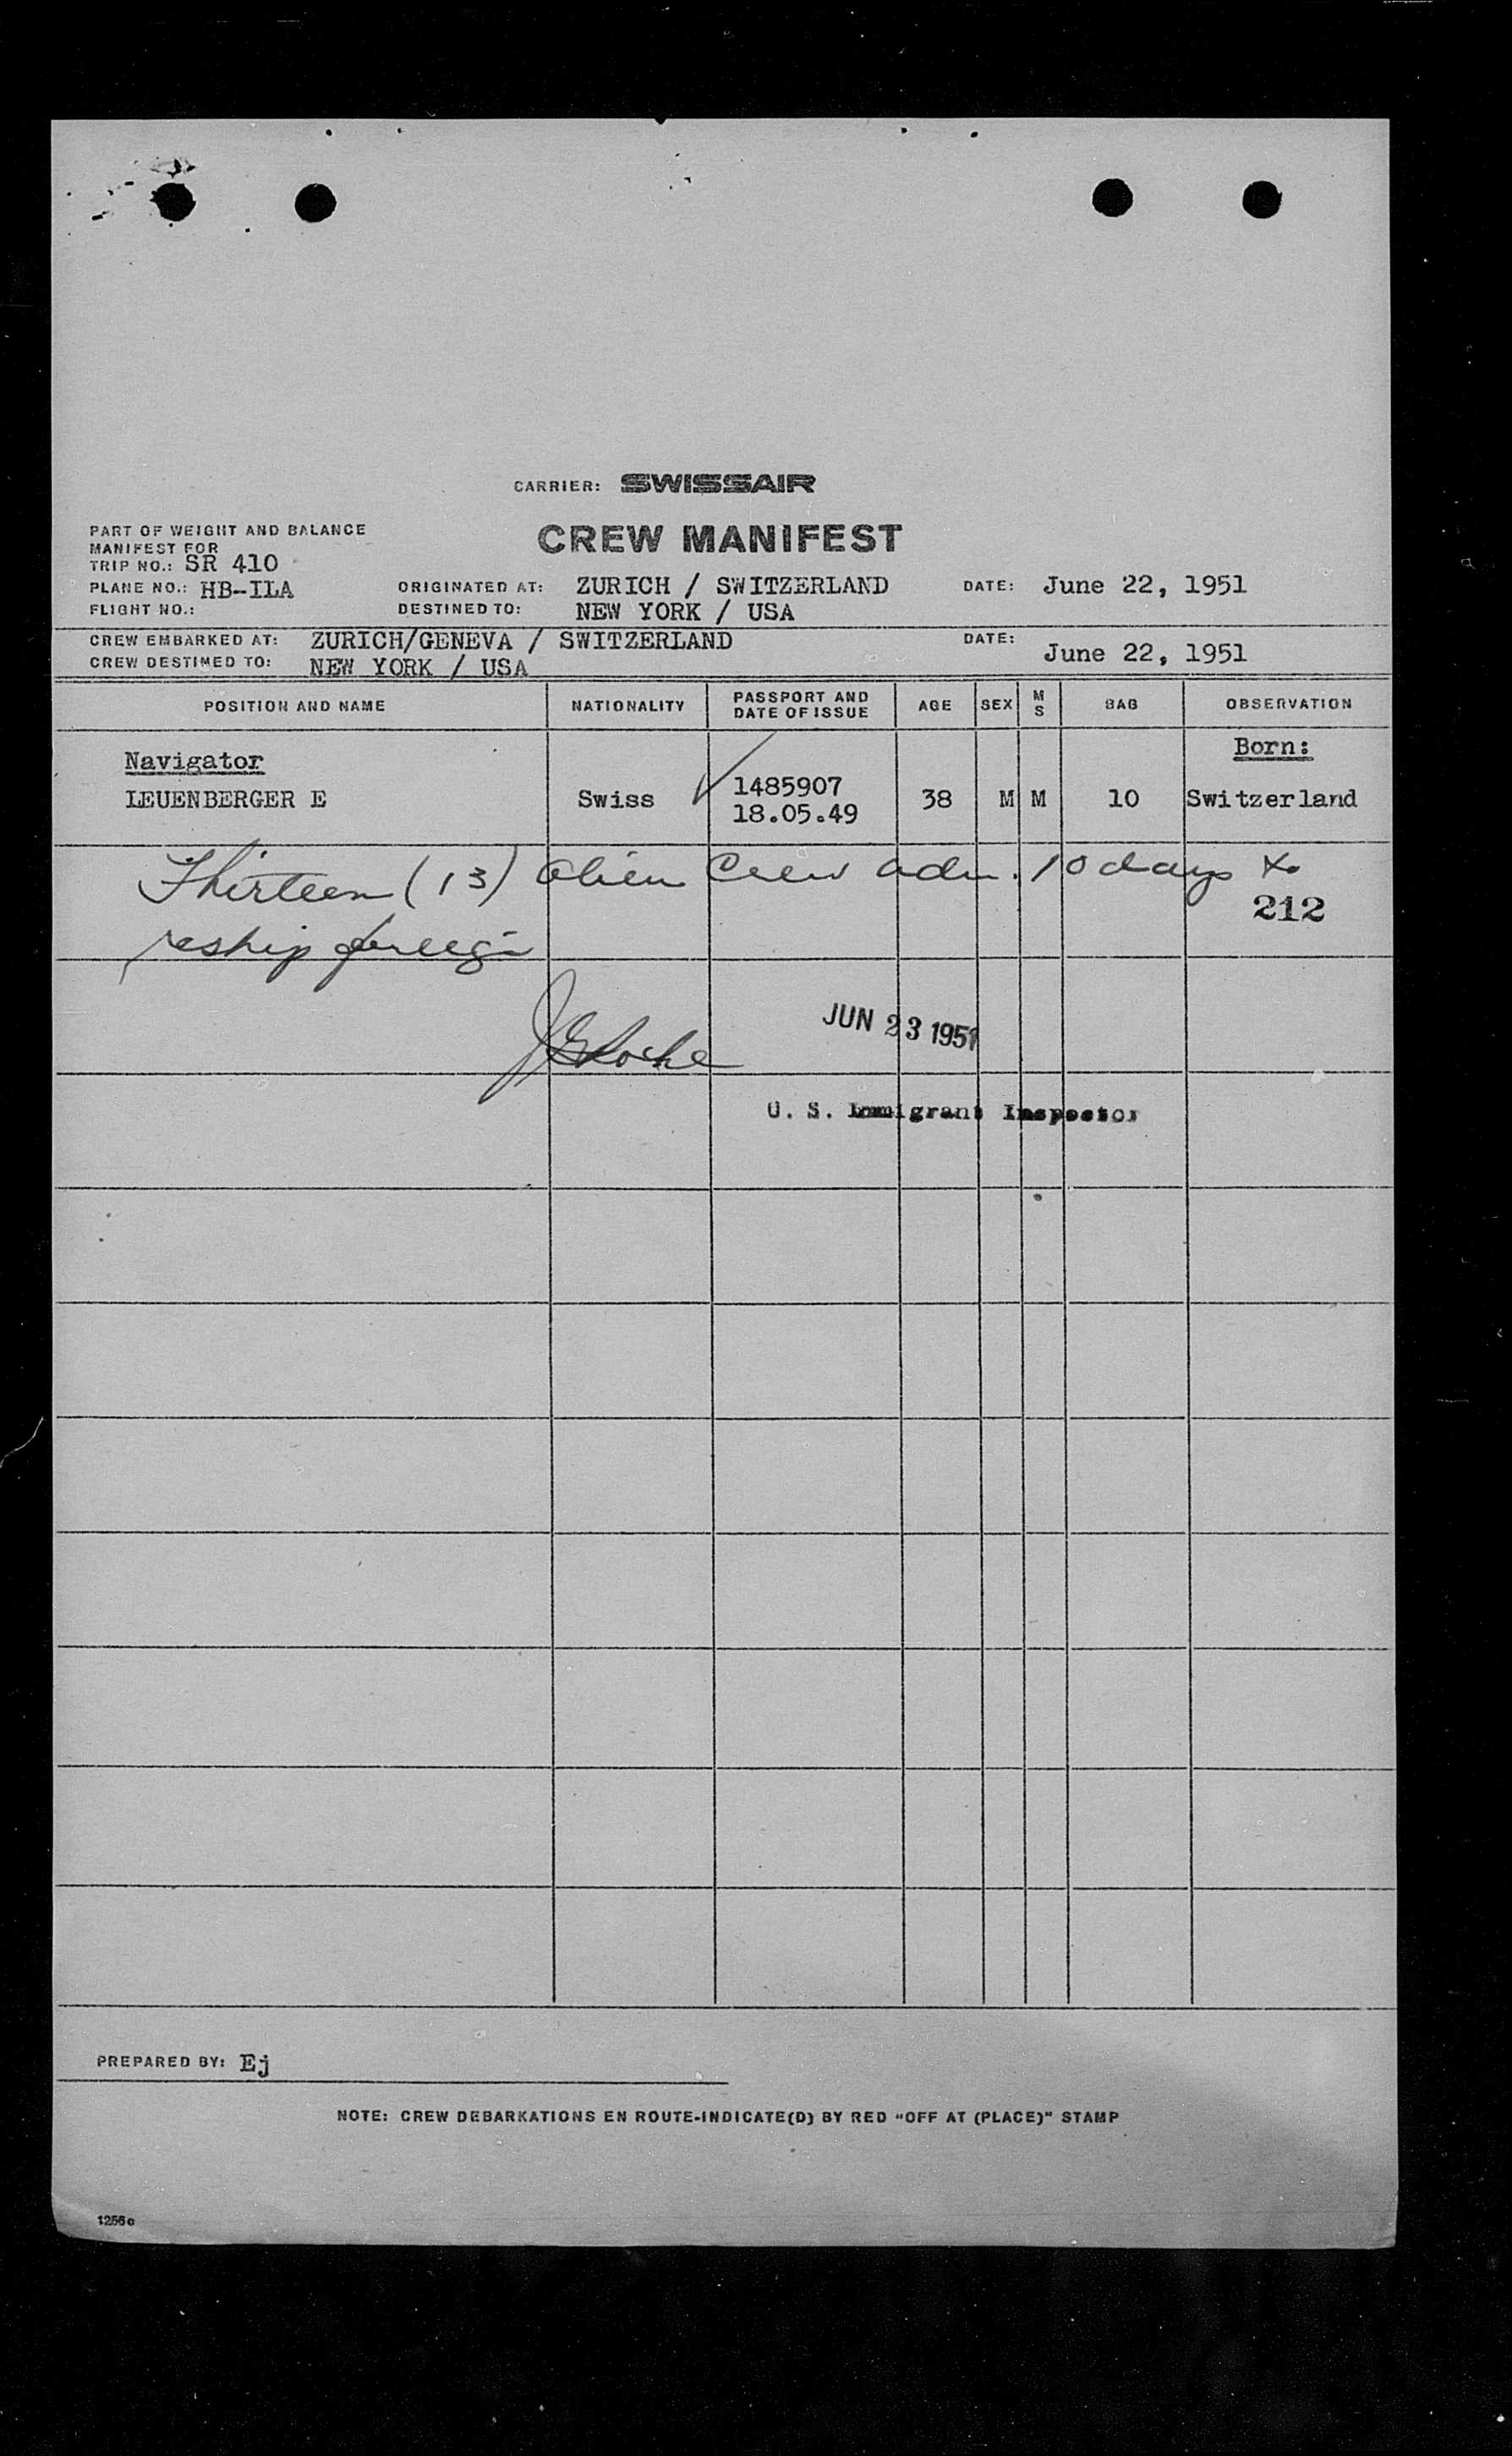 CARRIER: SWISSAIR
CREW MANIFEST
PART OF WEIGHT AND BALANCE
MANIFEST FOR
TRIP NO.: SR 410
PLANE NO.: HB-ILA ORIGINATED AT: ZURICH / SWITZERLAND DATE: June 22, 1951
FLIGHT NO.: DESTINED TO: NEW YORK / USA
CREW EMBARKED AT: ZURICH/GENEVA / SWITZERLAND DATE: June 22, 1951
CREW DESTINED TO: NEW YORK / USA
POSITION AND NAME NATIONALITY PASSPORT AND DATE OF ISSUE AGE SEX M S BAG OBSERVATION
Navigator Born:
LEUENBERGER E Swiss 1485907 38 M M 10 Switzerland
18.05.49
Thirteen (13) alien crew adm. 10 days to
212
reship foreign
JUN 23 1951
U. S. Immigrant Inspector
PREPARED BY: Ej
NOTE: CREW DEBARKATIONS EN ROUTE-INDICATE(D) BY RED "OFF AT (PLACE)" STAMP
1256c